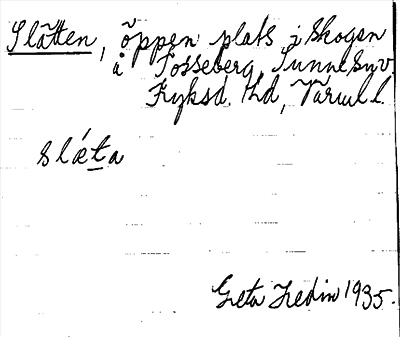 Slätten, öppen plats i skogen
å Fosseberg, Sunne, Sv.
Fryksd. hd, Värml.
slæta
Greta Hedin 1935.